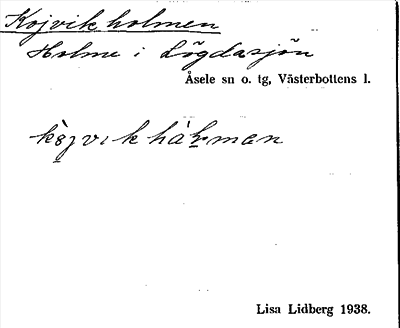 Kojvikholmen
Holme i Lögdasjön
Åsele sn o. tg, Västerbottens l.
Lisa Lidberg 1938.